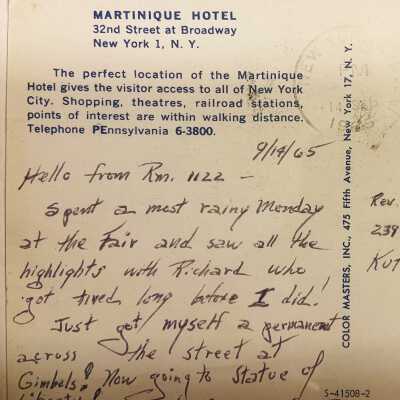 MARTINIQUE HOTEL
32nd Street at Broadway
New York 1, N. Y.
The perfect location of the Martinique
Hotel gives the visitor access to all of New York
City. Shopping, theatres, railroad stations,
points of interest are within walking distance.
Telephone PEnnsylvania 6-3800.
9/14/65
Hello from Rm. 1122 -
Spent a most rainy Monday
at the Fair and saw all the
highlights with Richard who
got tired long before I did!
Just got myself a permanent
across the street at
Gimbels! Now going to Statue of
Liberty!
COLOR MASTERS, INC., 475 Fifth Avenue, New York 17, N. Y.
Rev.
239
KUT
S-41508-2